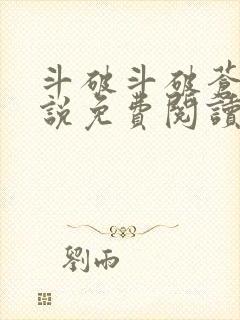 斗破斗破蒼
說免費閱讀
劉雨